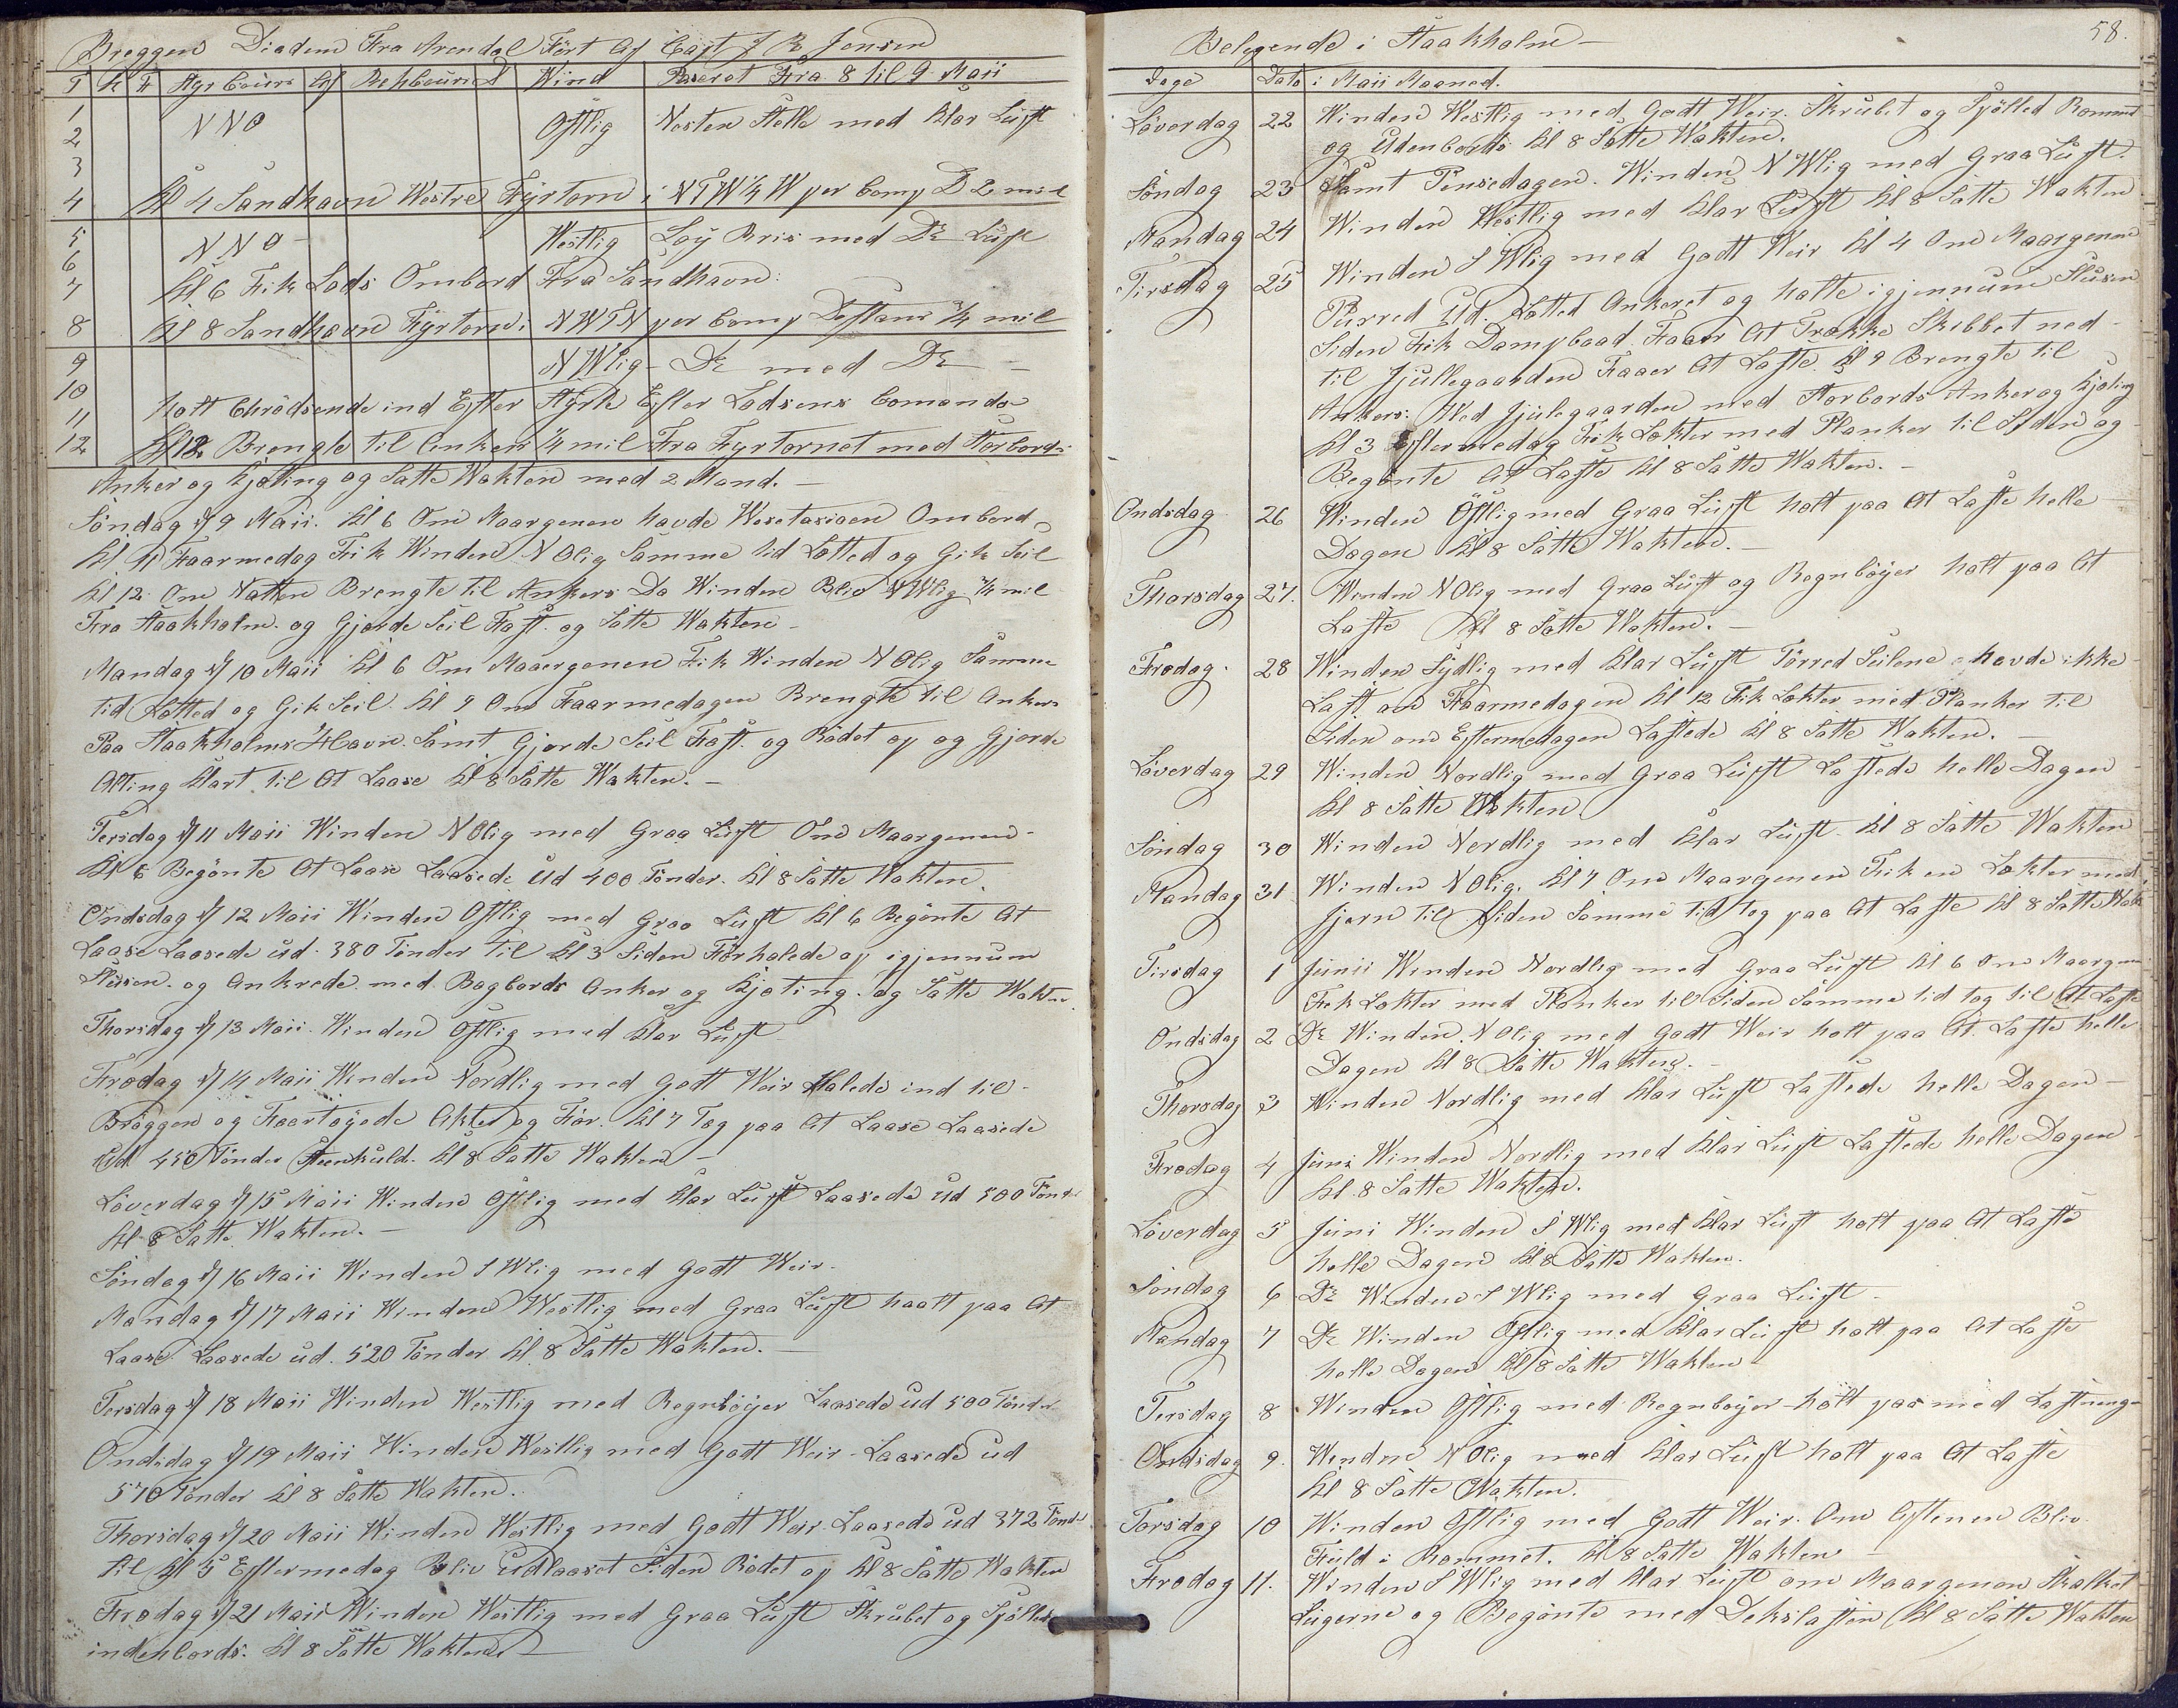 Breggen Diadem Fra Arendal Ført Af Capt J R Jensen
T K F Styr Cours Af Rehbourin D Wind Paseret Fra 8 til 9 Maii
1 NNO Ostlig Nesten Stelle med Klar Luft
2
3
4 Kl 4 Sandhavn Westre Fyrtorn i NTW¼W per Comp D 2 mil
5 NNO Westlig Løy Bris med Do Luft
6
7 Kl 6 Fik Lods Ombord Fra Sandhavn:
8 Kl 8 Sandhavn Fyrtorn i NWTN per Comp Distans ¼ mil
9 NWlig Do med Do
10
11 holt Chrødsende ind Efter Styrte Efter Lodsens Comando
12 Kl 12 Brengte til Ankers ¼ mil Fra Fyrtornet med Storbords
Anker og Kjøting og Satte Wakten med 2 Mand. —
Søndag d/ 9 Maii. Kl 6 Om Maargenen havde Wesetasioen Ombord
Kl 11 Faarmedag Fik Winden N Olig Samme tid Lotted og Gik Seil
Kl 12 Om Natten Brengte til Ankers Da Winden Blev NWlig ¼ mil
Fra Staakholm og Gjorde Seil Fast. og Satte Wakten —
Mandag d/ 10 Maii Kl 6 Om Maaergenen Fik Winden N Olig Samme
tid Lotted og Gik Seil. Kl 9 Om Faarmedagen Brengte til Ankers
Paa Staakholms Havn. Samt Gjorde Seil Fast. og Rødet op og Gjorde
Alting Klart til At Laase Kl 8 Satte Wakten. —
Tersdag d/ 11 Maii Winden N Olig med Graa Luft Om Maargenen
Kl 6 Begønte At Laase Laasede Ud 400 Tønder. Kl 8 Satte Wakten.
Ondsdag d/ 12 Maii Winden Ostlig med Graa Luft Kl 6 Begønte At
Laase Laasede ud. 380 Tønder til Kl 3 Siden Førhalede op igjennum
Slusen. og Ankrede med Bagbords Anker og Kjøting. og Satte Wakten
Thorsdag d/ 13 Maii. Winden Ostlig med Klar Luft
Fredag d/ 14 Maii Winden Nordlig med Godt Weir Halede ind til
Brøggen og Faartøyede Akter og Før. Kl 7 Tog paa At Laase Laasede
Ud 450 Tønder Steenkuld. Kl 8 Satte Wakten —
Løverdag d/ 15 Maii Winden Ostlig med Klar Luft Laasede Ud 500 Tønder
Kl 8 Satte Wakten. —
Søndag d/ 16 Maii Winden S Wlig med Godt Weir.
Mandag d/ 17 Maii Winden Westlig med Graa Luft haalt paa At
Laase Laasede ud. 520 Tønder Kl 8 Satte Wakten. —
Tersdag d/ 18 Maii Winden Westlig med Regnbøyer Laasede Ud 500 Tønder
Ondsdag d/ 19 Maii Winden Westlig med Godt Weir Laasede ud
570 Tønder Kl 8 Satte Wakten.
Thorsdag d/ 20 Maii Winden Westlig med Godt Weir Laasede Ud 372 Tønder
til Kl 5 Eftermedag Bliv Udlaaset Siden Rødet op Kl 8 Satte Wakten
Fredag d/ 21 Maii Winden Westlig med Graa Luft Skrubet og Spølled
indenbords. Kl 8 Satte Wakten —
58.
Belegende i Staakholm —
Dage Dato i Maii Maaned.
Løverdag 22 Winden Westlig med Godt Weir. Skrubet og Spølled Rommet
og Udenbords Kl 8 Satte Wakten.
Søndag 23 Samt Pinsedagen. Winden N Wlig med Graa Luft.
Mandag 24 Winden Westlig med Klar Luft Kl 8 Satte Wakten
Tirsdag 25 Winden S Wlig med Godt Weir Kl 4 Om Maargenen
Purred Ud. Lotted Ankeret og holte igjennum Slusen
Siden Fik Dampbaad Faaer At Trække Skibbet ned
til Jjullegaarden Faaer At Laste. Kl 9 Brengte til
Ankers: Wed Jjulegaarden med Storbords Anker og Kjøting
Kl 3 Eftermedag Fik Lokter med Planker til Siden og
Begønte At Laste Kl 8 Satte Wakten. —
Ondsdag 26 Winden Østlig med Graa Luft holt paa At Laste helle
Dagen Kl 8 Satte Wakten. —
Thorsdag 27. Winden N Olig med Graa Luft og Regnbøyer holt paa At
Laste Kl 8 Satte Wakten. —
Fredag. 28 Winden Sydlig med Klar Luft Tørred Seilene havde ikke
Last om Faarmedagen Kl 12 Fik Lokter med Planker til
Siden om Eftermedagen Lastede Kl 8 Satte Wakten. —
Løverdag 29 Winden Nordlig med Graa Luft Lastede helle Dagen
Kl 8 Satte Wakten
Søndag 30 Winden Nordlig med Klar Luft. Kl 8 Satte Wakten
Mandag 31 Winden N Olig. Kl 7 Om Maargenen Fik en Lokter med
Jjern til Siden Samme tid tog paa At Laste Kl 8 Satte Wak
Tirsdag 1 Junii Winden Nordlig med Graa Luft Kl 6 Om Maargen
Fik Lokter med Planker til Siden Samme tid tog til At Laste
Ondsdag 2 Do Winden N Olig med Godt Weir holt paa At Laste helle
Dagen Kl 8 Satte Wakten. —
Thorsdag 3 Winden Nordlig med Klar Luft Lastede helle Dagen —
Fredag 4 Juni Winden Nordlig med Klar Luft Lastede helle Dagen
Kl 8 Satte Wakten.
Løverdag 5 Juni Winden S Wlig med Klar Luft holt paa At Laste
helle Dagen Kl 8 Satte Wakten.
Søndag 6 Do Winden S Wlig med Graa Luft —
Mandag 7 Do Winden Ostlig med Klar Luft holt paa At Laste
helle Dagen Kl 8 Satte Wakten
Tersdag 8 Winden Ostlig med Regnbøyer holt paa med Lastninge
Ondsdag 9. Winden N Olig med Klar Luft holt paa At Laste
Kl 8 Satte Wakten.
Torsdag 10 Winden Ostlig med Godt Weir. Om Aftenen Bliv
Fuld i Rommet. Kl 8 Satte Wakten —
Fredag 11. Winden S Wlig med Klar Luft om Maargenen Skalket
Lugerne og Begønte med Dekslasten Kl 8 Satte Wakten